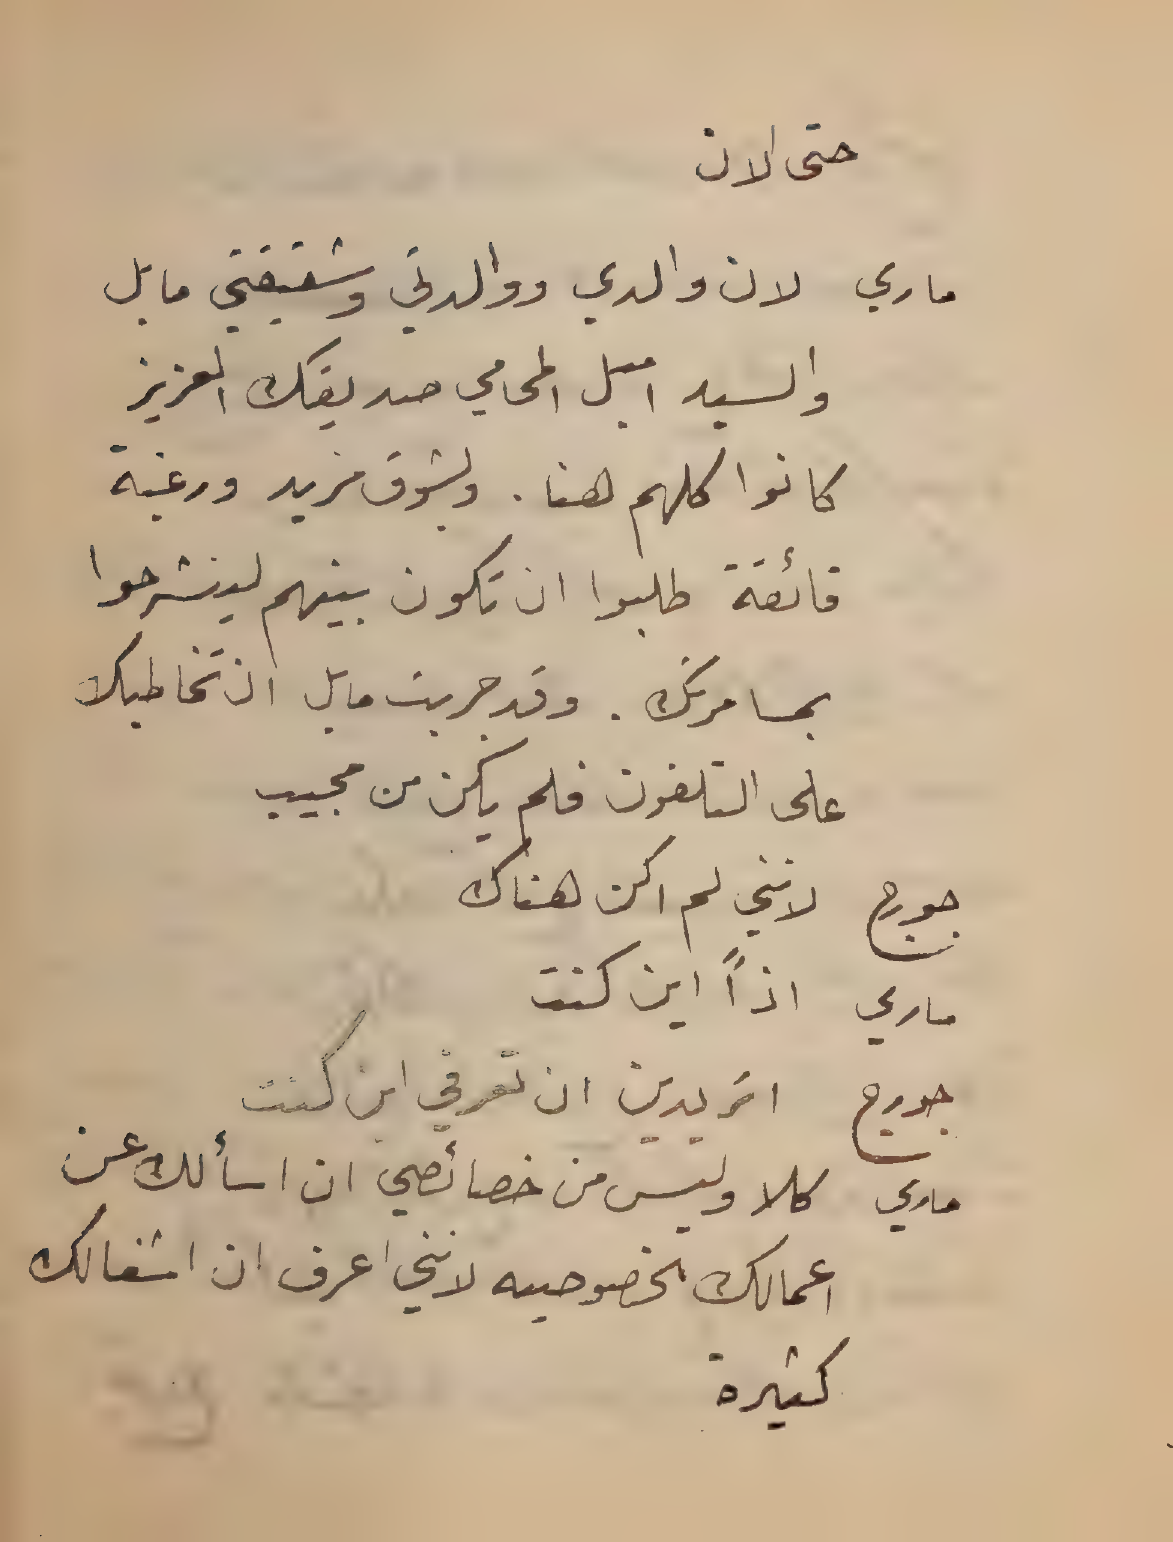 حتى الان
ماري لان والدي ووالدتي وشقيقتي مابل
والسيد اميل المحامي صديقك العزيز
كانوا كلهم هنا . وبشوق مزيد ورغبة
فائقة طلبوا ان تكون بينهم لينشرحوا
بمسامرتك . وقد جربت مابل ان تخاطبك
على التلفون فلم يكن من مجيب
جورج لانني لم اكن هناك
ماري اذاً اين كنت
جورج اتريدين ان تعرفي اين كنت
ماري كلا وليس من خصائصي ان اسألك عن
اعمالك الخصوصيه لانني اعرف ان اشغالك
كثيرة